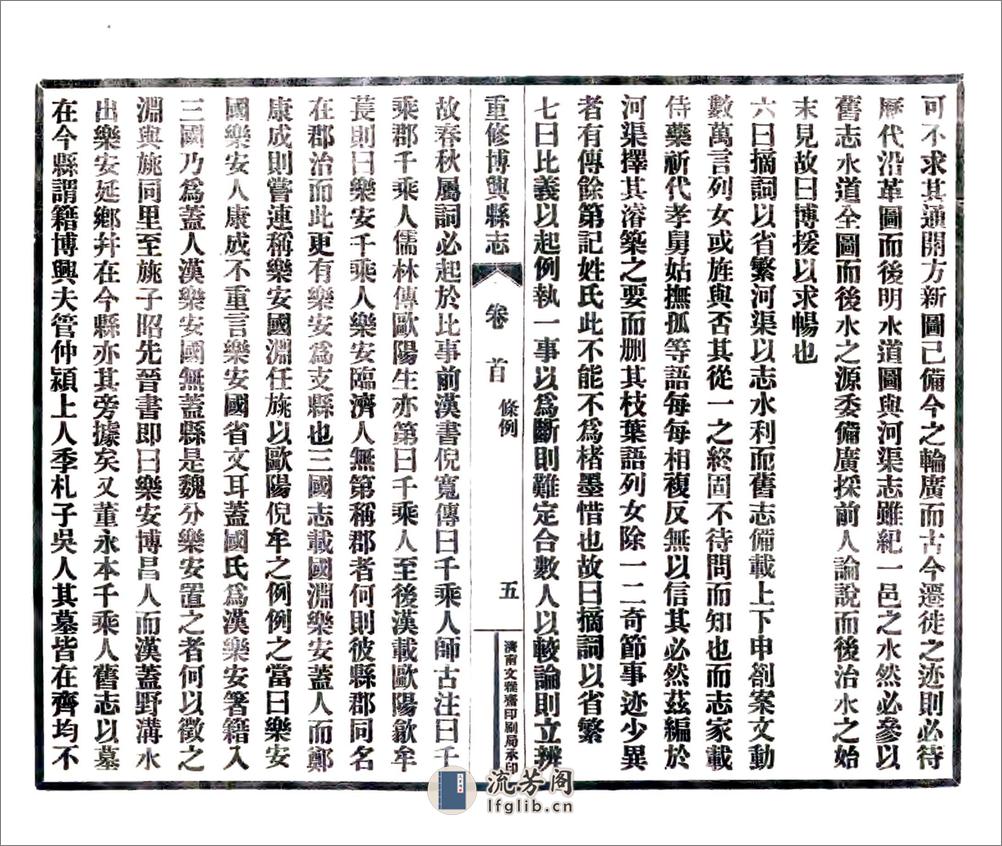 可不求其通開方新圖已備今之輪廣而古今遷徙之迹則必待
歷代沿革圖而後明水道圖與河渠志雖紀一邑之水然必參以
舊志水道全圖而後水之源委備廣採前人論說而後治水之始
末見故曰博援以求暢也
六曰摘詞以省繁河渠以志水利而舊志備載上下申劄案文動
數萬言列女或旌與否其從一之終固不待問而知也而志家載
侍藥祈代孝舅姑撫孤等語每每相複反無以信其必然茲編於
河渠擇其濬築之要而刪其枝葉語列女除一二奇節事迹少異
者有傳餘第記姓氏此不能不爲楮墨惜也故曰摘詞以省繁
七曰比義以起例執一事以爲斷則難定合數人以較論則立辨
重修博興縣志 卷首 條例 五 濟南文雅齋印刷局承印
故春秋屬詞必起於比事前漢書倪寬傳曰千乘人師古注曰千
乘郡千乘人儒林傳歐陽生亦第曰千乘人至後漢載歐陽歙牟
萇則曰樂安千乘人樂安臨濟人無第稱郡者何則彼縣郡同名
在郡治而此更有樂安爲支縣也三國志載國淵樂安蓋人而鄭
康成則嘗連稱樂安國淵任旐以歐陽倪牟之例例之當曰樂安
國樂安人康成不重言樂安國省文耳蓋國氏爲漢樂安箸籍入
三國乃爲蓋人漢樂安國無蓋縣是魏分樂安置之者何以徵之
淵與旐同里至旐子昭先晉書即曰樂安博昌人而漢蓋野溝水
出樂安延鄉幷在今縣亦其旁據矣又董永本千乘人舊志以墓
在今縣謂籍博興夫管仲潁上人季札子吳人其墓皆在齊均不
流芳阁
lfglib.cn